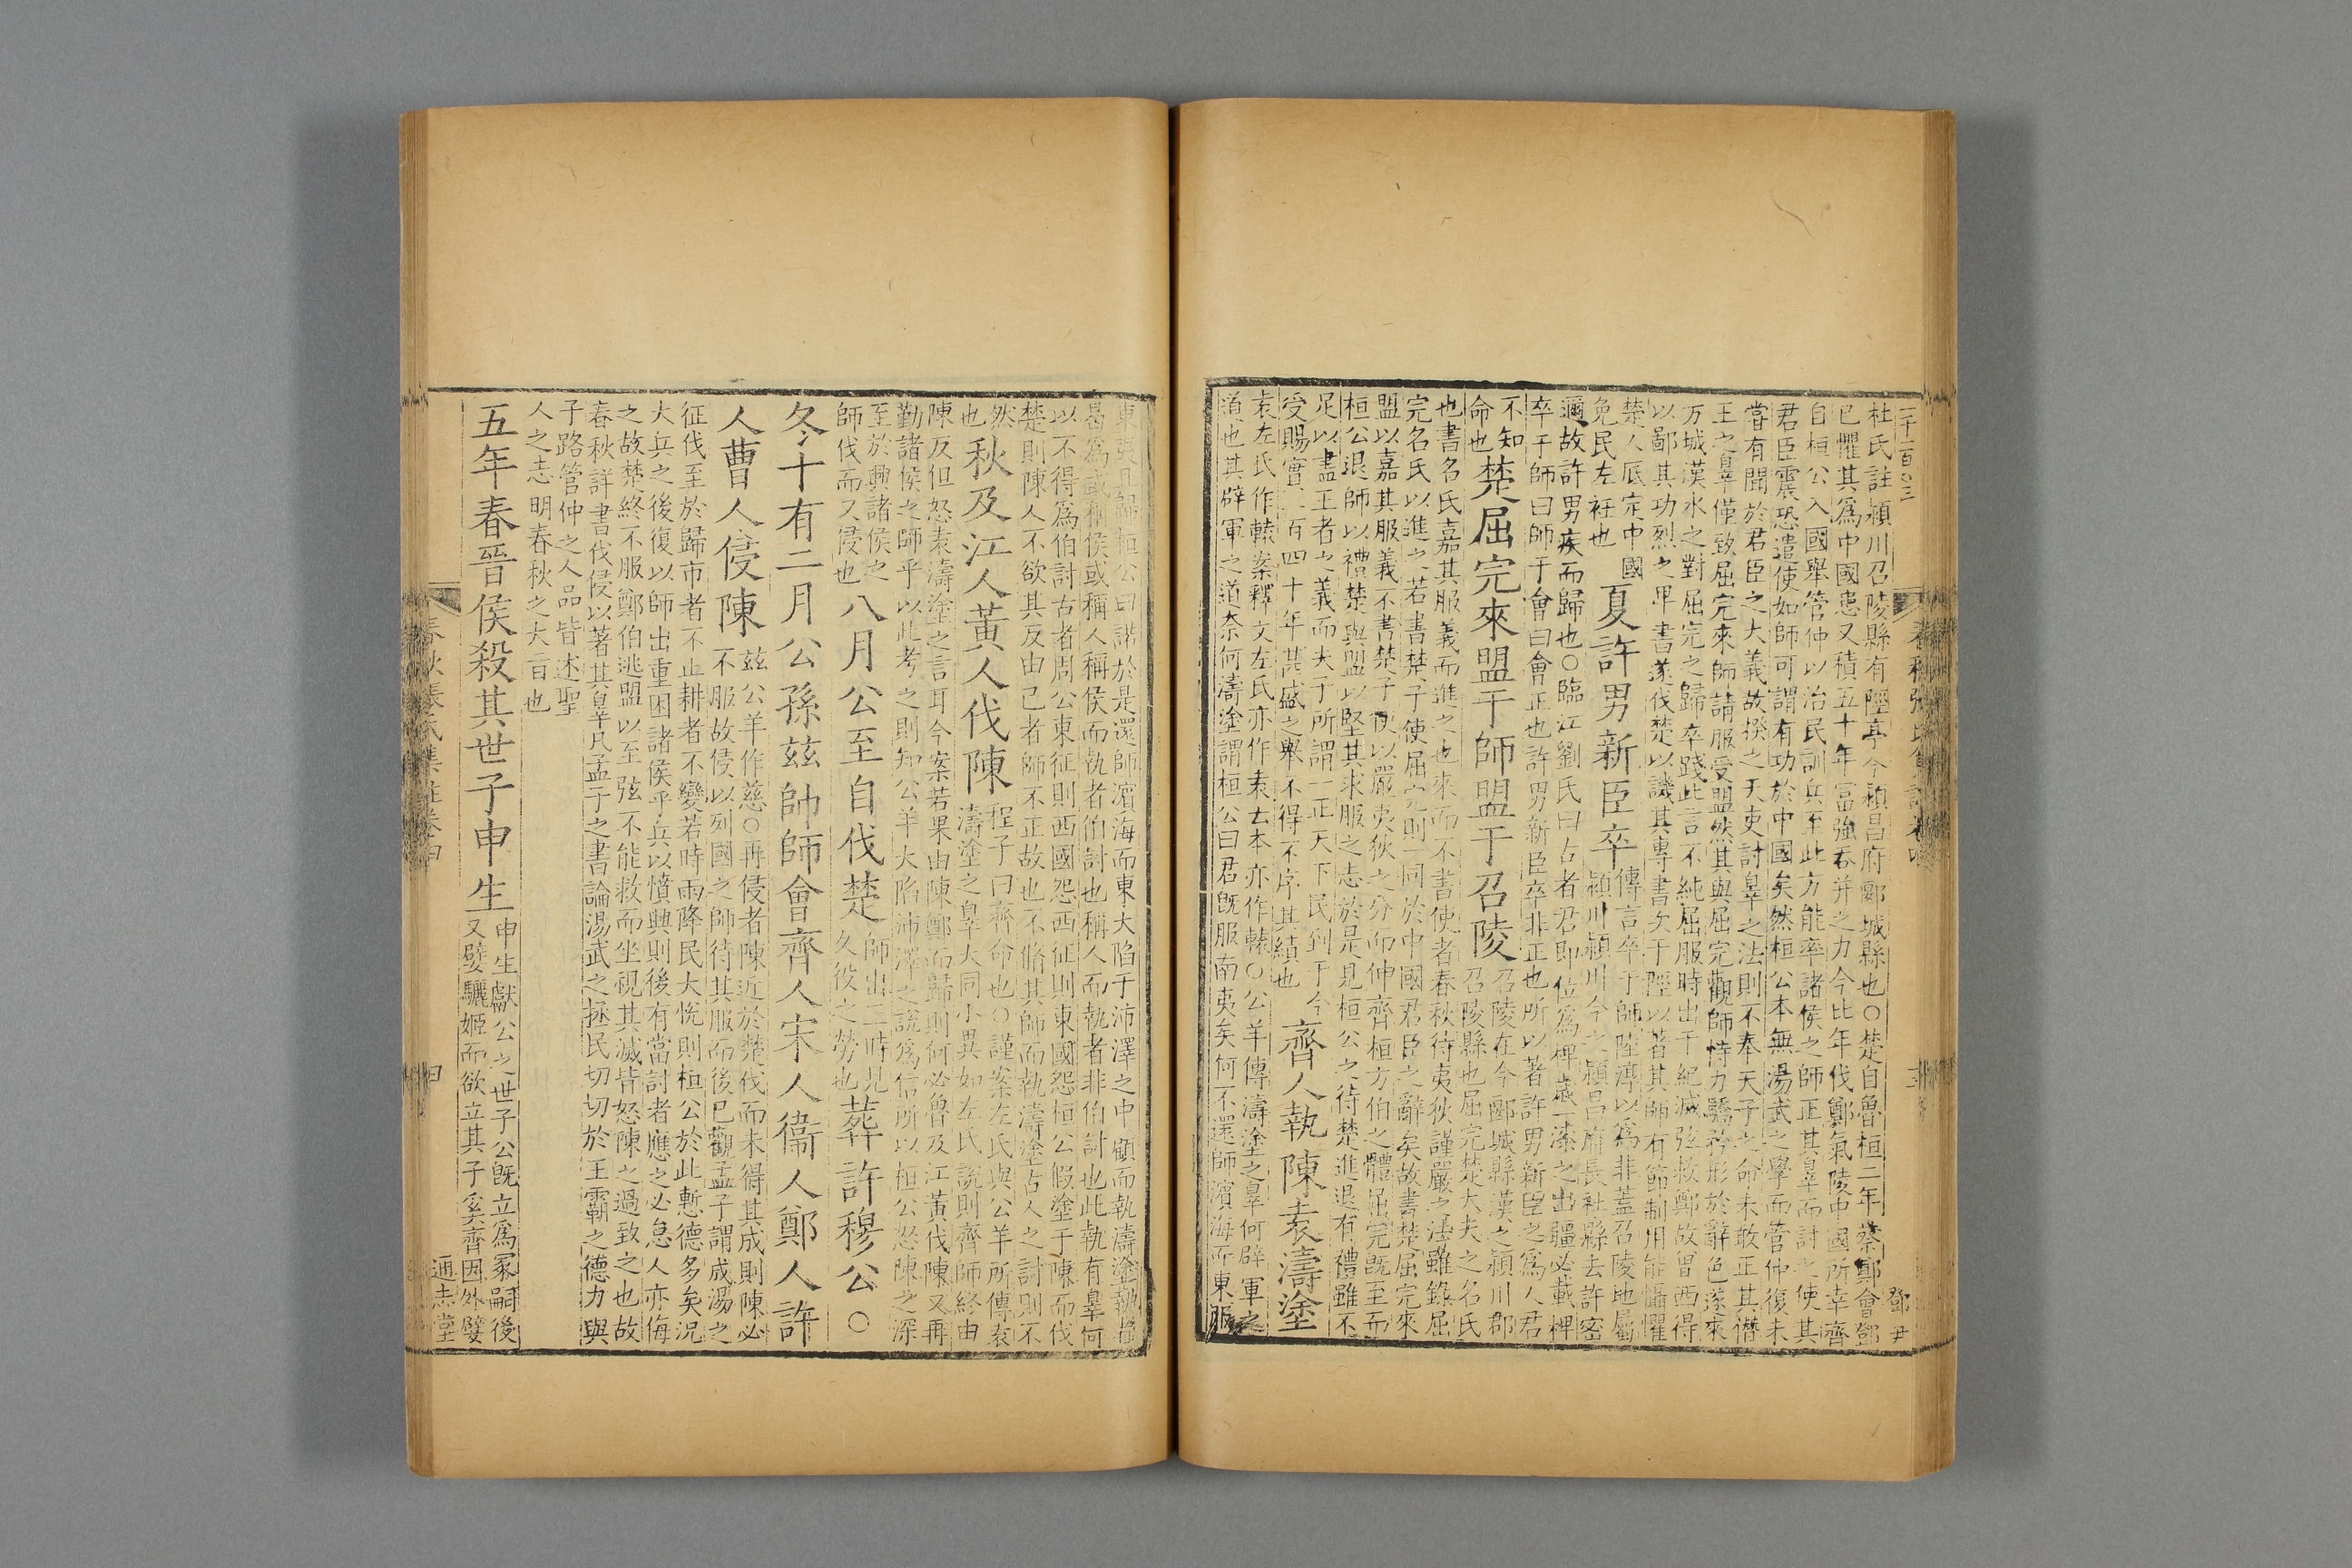 杜氏註潁川召陵縣有陘亭今潁昌府郾城縣也○楚自魯桓二年蔡鄭會鄧
已懼其爲中國患又積五十年富強吞并之力今比年伐鄭氣陵中國所幸齊
自桓公入國舉管仲以治民訓兵至此方能率諸侯之師正其辠而討之使其
君臣震恐遣使如師可謂有功於中國矣然桓公本無湯武之學而管仲復未
嘗有聞於君臣之大義故揆之天吏討辠之法則不奉天子之命未敢正其僭
王之辠僅致屈完來師請服受盟然其與屈完觀師恃力驕矜形於辭色遂來
方城漢水之對屈完之歸卒踐此言不純屈服時出干紀滅弦救鄭故曾西得
以鄙其功烈之卑書遂伐楚以譏其專書次于陘以著其師有節制用能懾懼
楚人厎定中國
免民左衽也
夏許男新臣卒
傳言卒于師陸淳以爲非蓋召陵地屬
潁川潁川今之潁昌府長社縣去許密
邇故許男疾而歸也○臨江劉氏曰古者君即位爲椑歲一漆之出疆必載椑
卒于師曰師于會曰會正也許男新臣卒非正也所以著許男新臣之爲人君
不知
命也
楚屈完來盟于師盟于召陵
召陵在今郾城縣漢之潁川郡
召陵縣也屈完楚大夫之名氏
也書名氏嘉其服義而進之也來而不書使者春秋待夷狄謹嚴之法雖錄屈
完名氏以進之若書楚子使屈完則一同於中國君臣之辭矣故書楚屈完來
盟以嘉其服義不書楚子使以嚴夷狄之分而仲齊桓方伯之體屈完旣至而
桓公退師以禮楚與盟以堅其求服之志於是見桓公之待楚進退有禮雖不
足以盡王者之義而夫子所謂一正天下民到于今
受賜實二百四十年其盛之舉不得不序其績也
齊人執陳袁濤塗
袁左氏作轅案釋文左氏亦作袁云本亦作轅○公羊傳濤塗之辠何辟軍之
道也其辟軍之道柰何濤塗謂桓公曰君旣服南夷矣何不還師濱海而東服
東夷且歸桓公曰諾於是還師濱海而東大陷于沛澤之中顧而執濤塗執者
曷爲或稱侯或稱人稱侯而執者伯討也稱人而執者非伯討也此執有辠何
以不得爲伯討古者周公東征則西國怨西征則東國怨桓公假塗于陳而伐
楚則陳人不欲其反由己者師不正故也不脩其師而執濤塗古人之討則不
然
也
秋及江人黃人伐陳
程子曰齊命也○謹案左氏與公羊所傳袁
濤塗之辠大同小異如左氏說則齊師終由
陳反但怒袁濤塗之言耳今案若果由陳鄭而歸則何必魯及江黃伐陳又再
勤諸侯之師乎以此考之則知公羊大陷沛澤之說爲信所以桓公怒陳之深
至於興諸侯之
師伐而又侵也
八月公至自伐楚
師出三時見
久役之勞也
葬許穆公○
冬十有二月公孫茲帥師會齊人宋人衞人鄭人許
人曹人侵陳
茲公羊作慈○再侵者陳近於楚伐而未得其成則陳必
不服故侵以列國之師待其服而後已觀孟子謂成湯之
征伐至於歸市者不止耕者不變若時雨降民大悅則桓公於此慙德多矣況
大兵之後復以師出重困諸侯乎兵以憤興則後有當討者應之必怠人亦侮
之故楚終不服鄭伯逃盟以至弦不能救而坐視其滅皆怒陳之過致之也故
春秋詳書伐侵以著其辠凡孟子之書論湯武之拯民切切於王霸之德力與
子路管仲之人品皆述聖
人之志明春秋之大旨也
五年春晉侯殺其世子申生
申生獻公之世子公旣立爲冢嗣後
又嬖驪姬而欲立其子奚齊因外嬖
通志堂